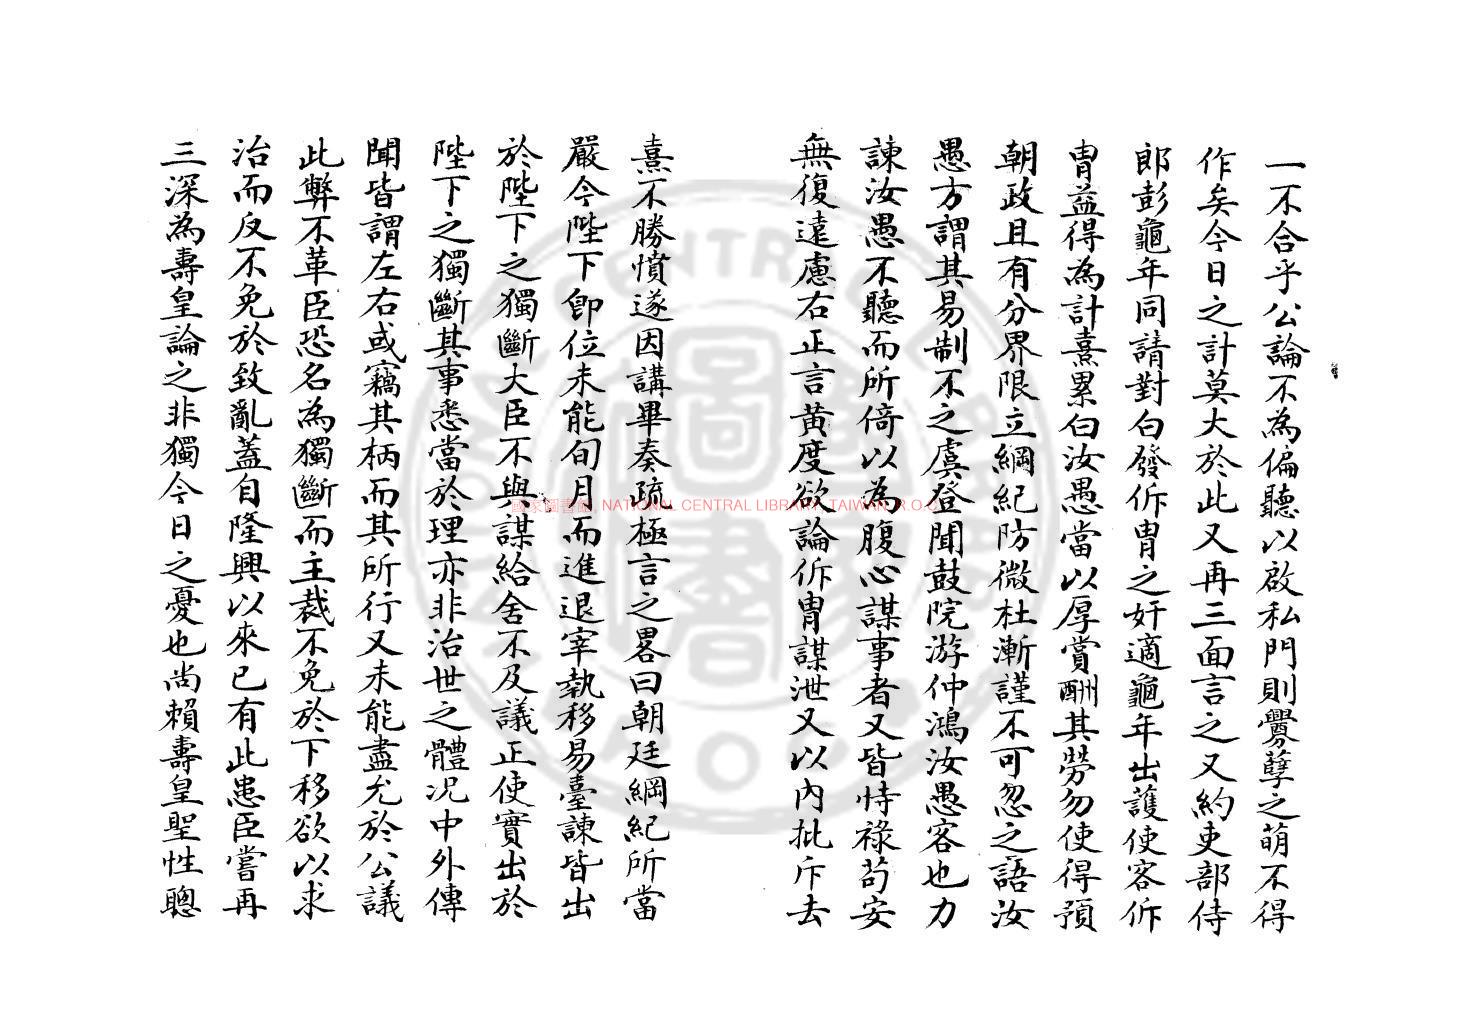 一不合乎公論不為偏聽以啟私門則釁孽之萌不得
作矣今日之計莫大於此又再三面言之又約吏部侍
郎彭龜年同請對白發侂冑之奸適龜年出護使客侂
冑益得為計熹累白汝愚當以厚賞酬其勞勿使得預
朝政且有分界限立綱紀防微杜漸謹不可忽之語汝
愚方謂其易制不之虞登聞鼓院游仲鴻汝愚客也力
諫汝愚不聽而所倚以為腹心謀事者又皆恃祿苟安
無復遠慮右正言黃度欲論侂冑謀泄又以內批斥去
熹不勝憤遂因講畢奏疏極言之畧曰朝廷綱紀所當
嚴今陛下卽位未能旬月而進退宰執移易臺諫皆出
於陛下之獨斷大臣不與謀給舍不及議正使實出於
陛下之獨斷其事悉當於理亦非治世之體况中外傳
聞皆謂左右或竊其柄而其所行又未能盡允於公議
此弊不革臣恐名為獨斷而主裁不免於下移欲以求
治而反不免於致亂蓋自隆興以來已有此患臣嘗再
三深為壽皇論之非獨今日之憂也尚賴壽皇聖性聰
國家圖書館, NATIONAL CENTRAL LIBRARY, TAIWAN, R.O.C